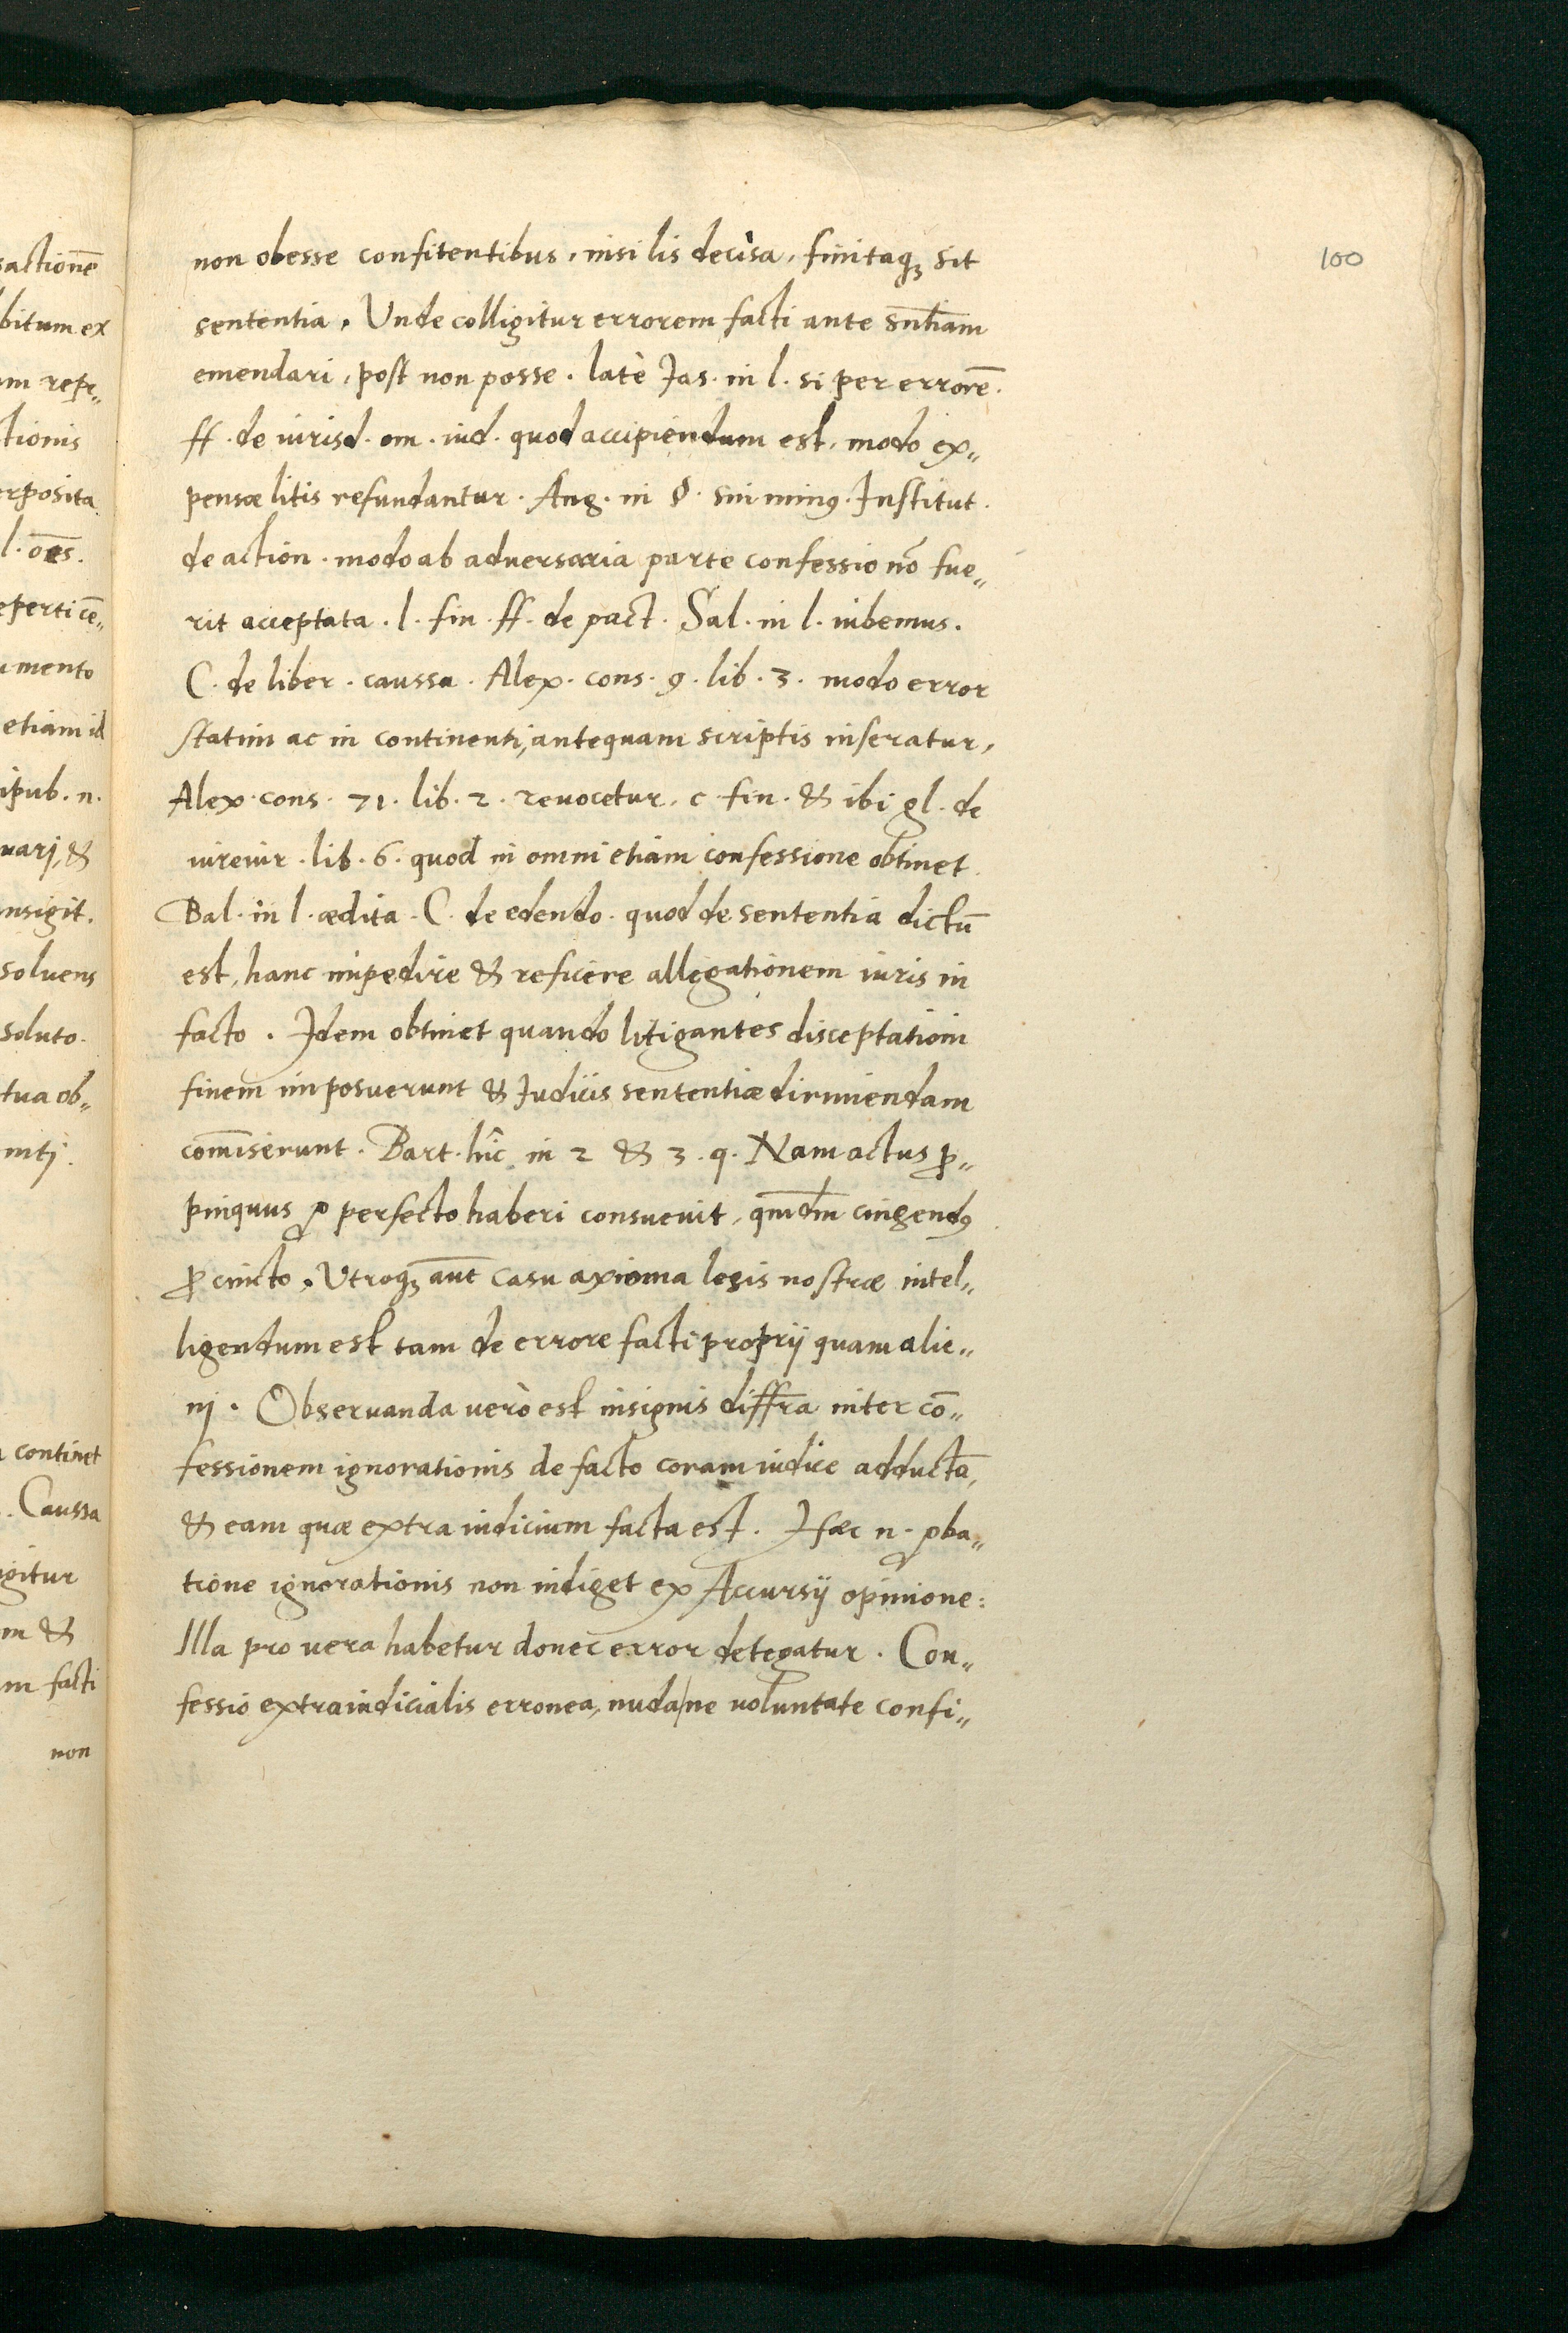 100
non obesse confitentibus, nisi lis decisa, finitaq; sit
sententia. Unde colligitur errorem facti ante snt̄iam
emendari, post non posse. latè Jas. in l. si per errorē.
ff. de iurisd. om. iud. quod accipiendum est, modo ex„
pensæ litis refundantur. Ang. in §. sin minꝰ. Institut.
de action. modo ab adversaria parte confessio nō fue„
rit acceptata. l. fin. ff. de pact. Sal. in l. iubemus.
C. de liber. caussa. Alex. cons. 9. lib. 3. modo error
statim ac in continenti, antequam scriptis inseratur,
Alex. cons. 71. lib. 2. revocetur, c. fin. & ibi gl. de
iureiur. lib. 6. quod in omni etiam confessione obtinet.
Bal. in l. ædita. C. de edendo. quod de sententia dictū
est, hanc impedire & reficere allegationem iuris in
facto. Idem obtinet quando litigantes disceptationi
finem imposuerunt & Judicis sententiæ dirimendam
com̄iserunt. Bart. hîc in 2 & 3. q. Nam actus ꝓ„
pinquus ꝓ perfecto haberi consuevit, qm̄dm cingendꝰ
ꝓ cincto. Utroq; aūt casu axioma legis nostræ intel„
ligendum est tam de errore facti proprij quam alie„
nj. Observanda verò est insignis diffr̄a inter cō„
fessionem ignorationis de facto coram iudice adductā,
& eam quæ extra iudicium facta est. Hæc n. ꝓba„
tione ignorationis non indiget ex Accursij opinione:
Illa pro vera habetur donec error detegatur. Con„
fessio extraiudicialis erronea, nuda/ne voluntate confi„